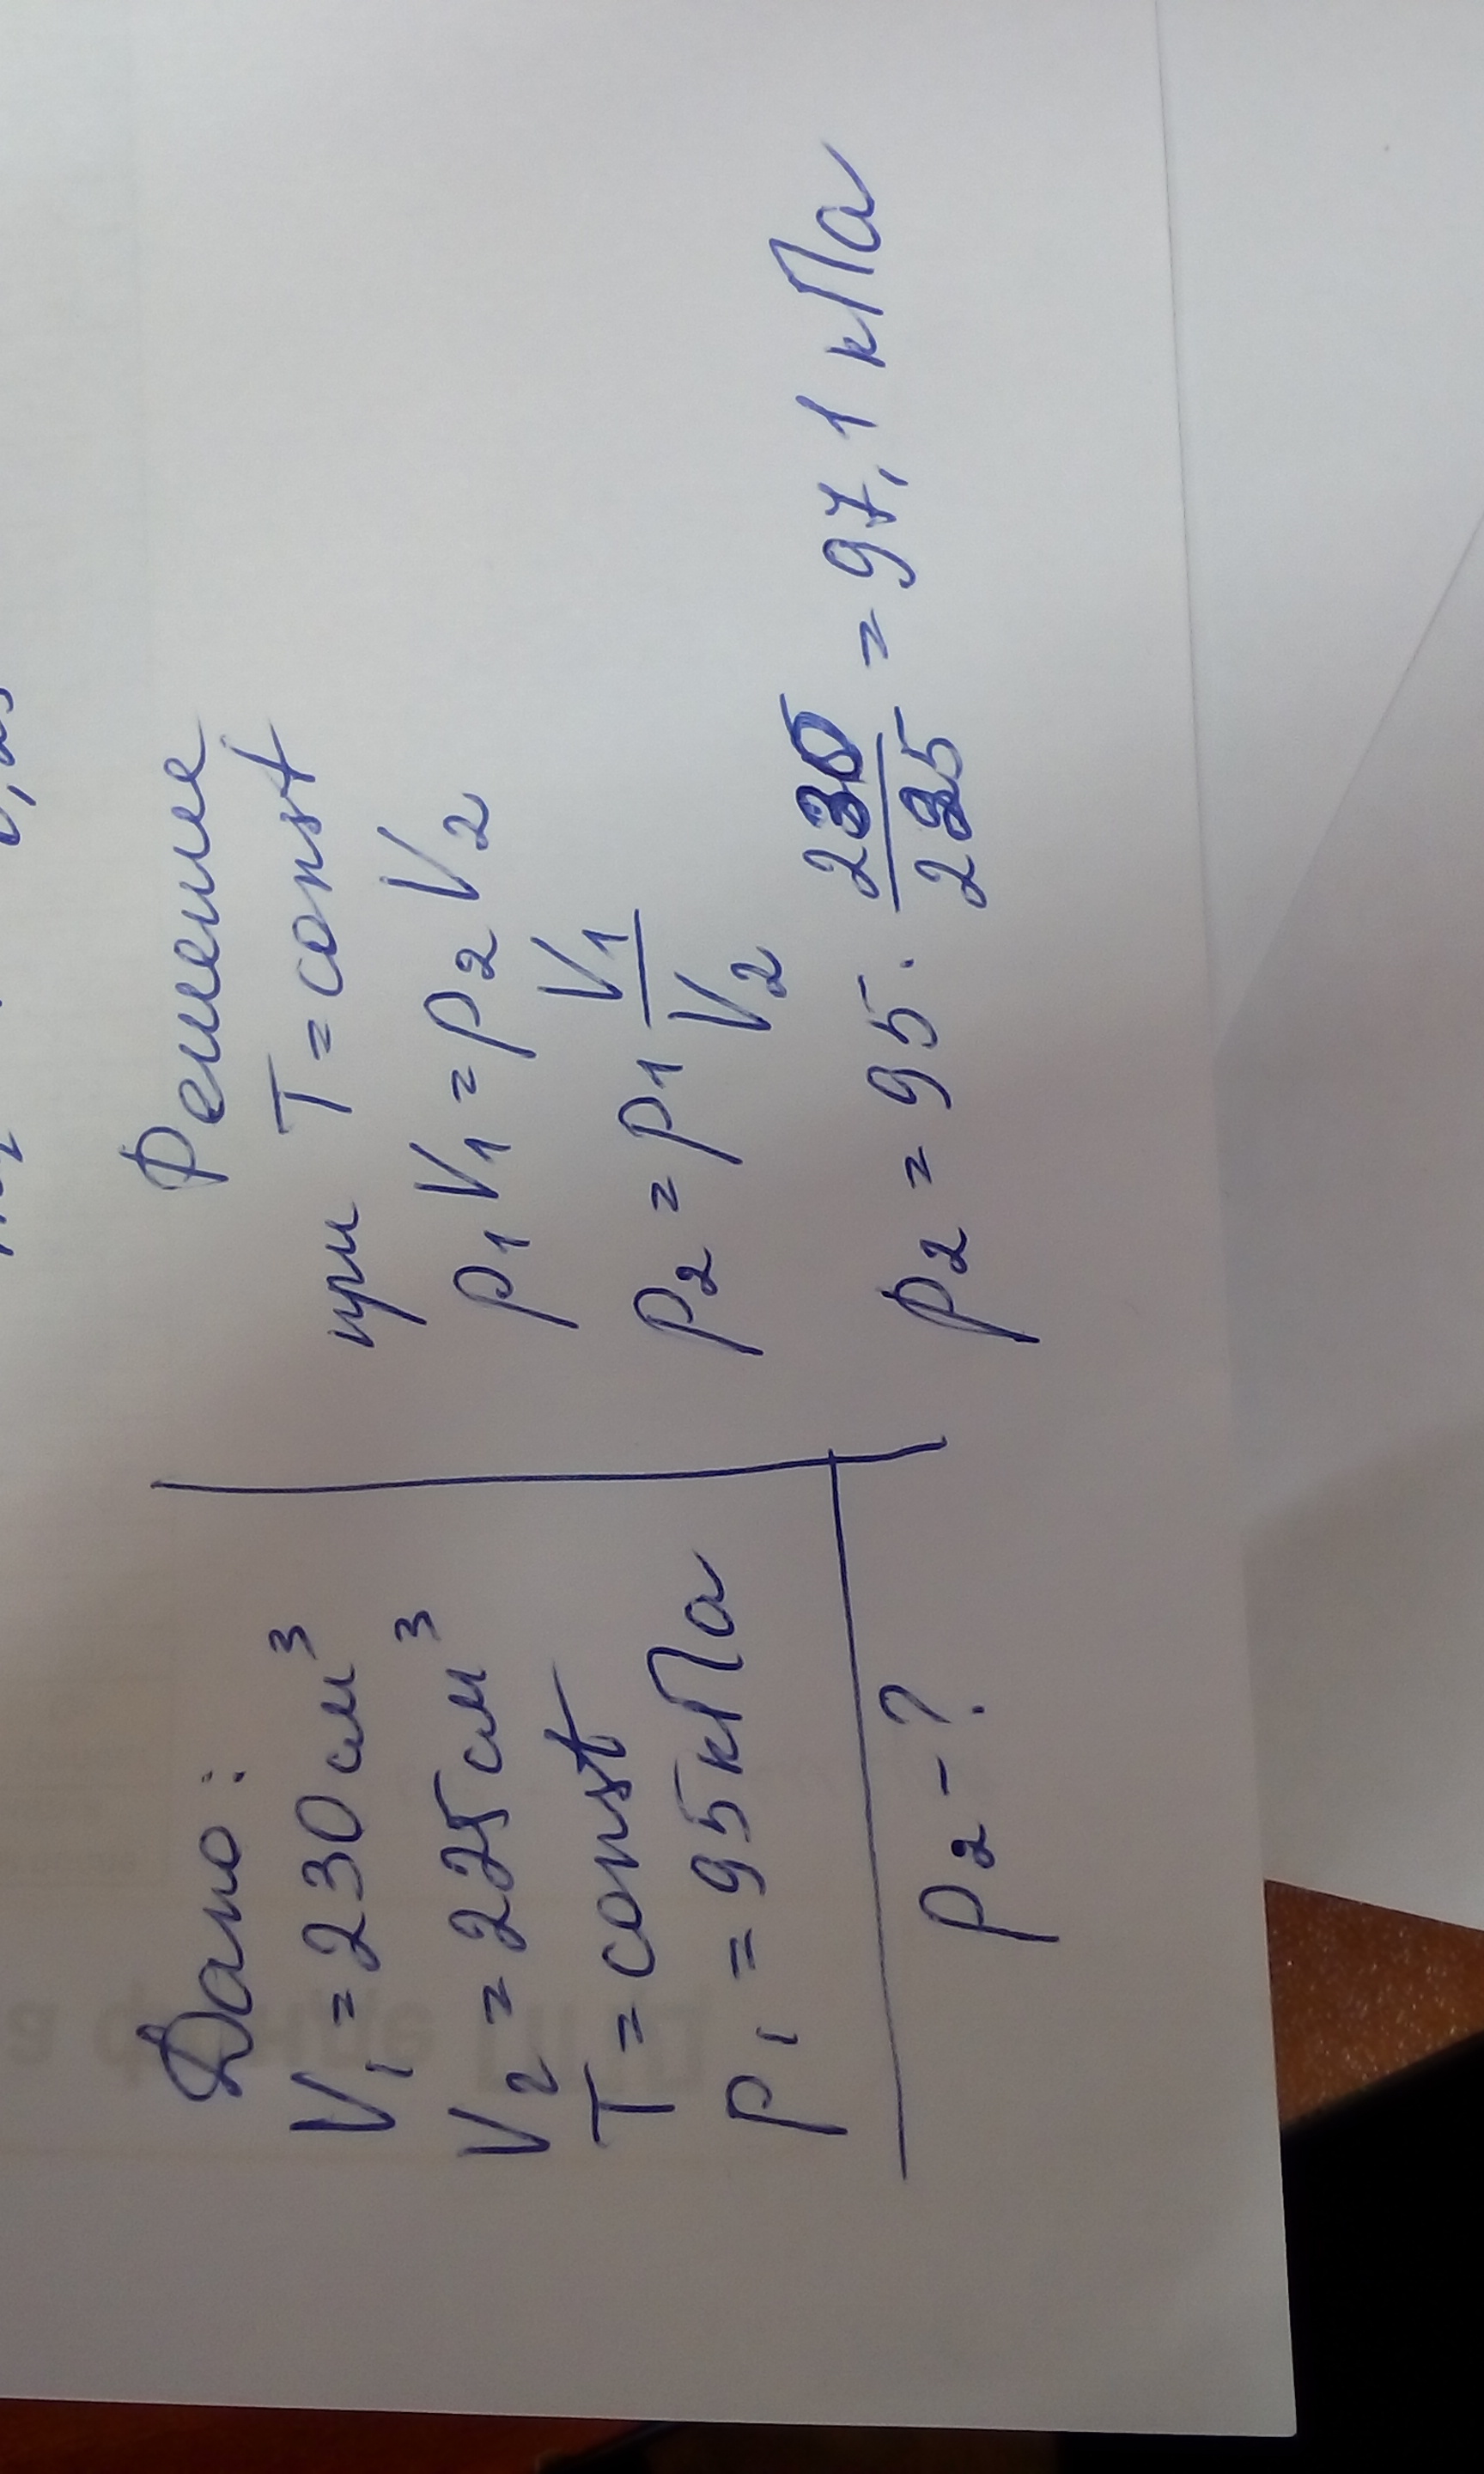 Дано:
V₁ = 230 см³
V₂ = 225 см³
T = const
p₁ = 95 кПа
p₂ - ?
Решение
при T = const
p₁ V₁ = p₂ V₂
p₂ = p₁ V₁/V₂
p₂ = 95 · 230/225 = 97,1 кПа